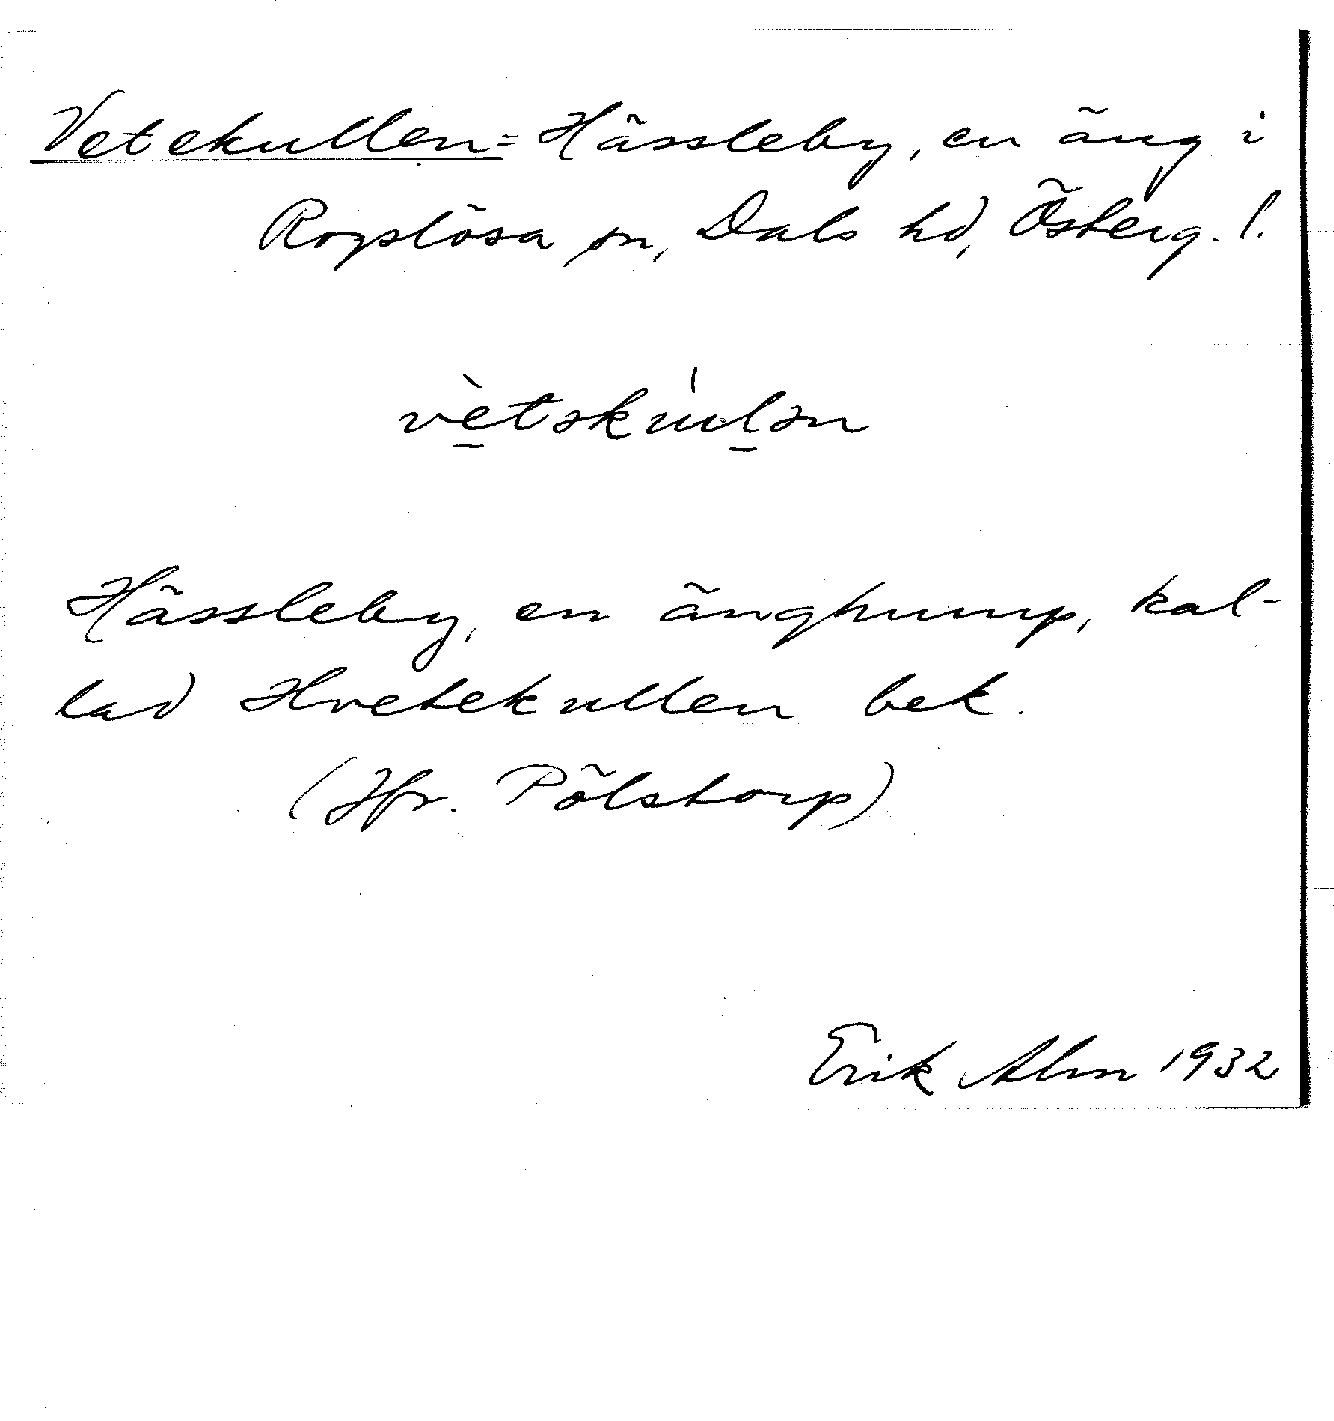 Vetekullen = Hässleby, en äng i
Rogslösa sn, Dals hd, Österg. l.
vètəkúlən
Hässleby, en ängshump, kal-
lad Hvetekullen bek.
(Jfr. Pölstorp)
Erik Alm 1932